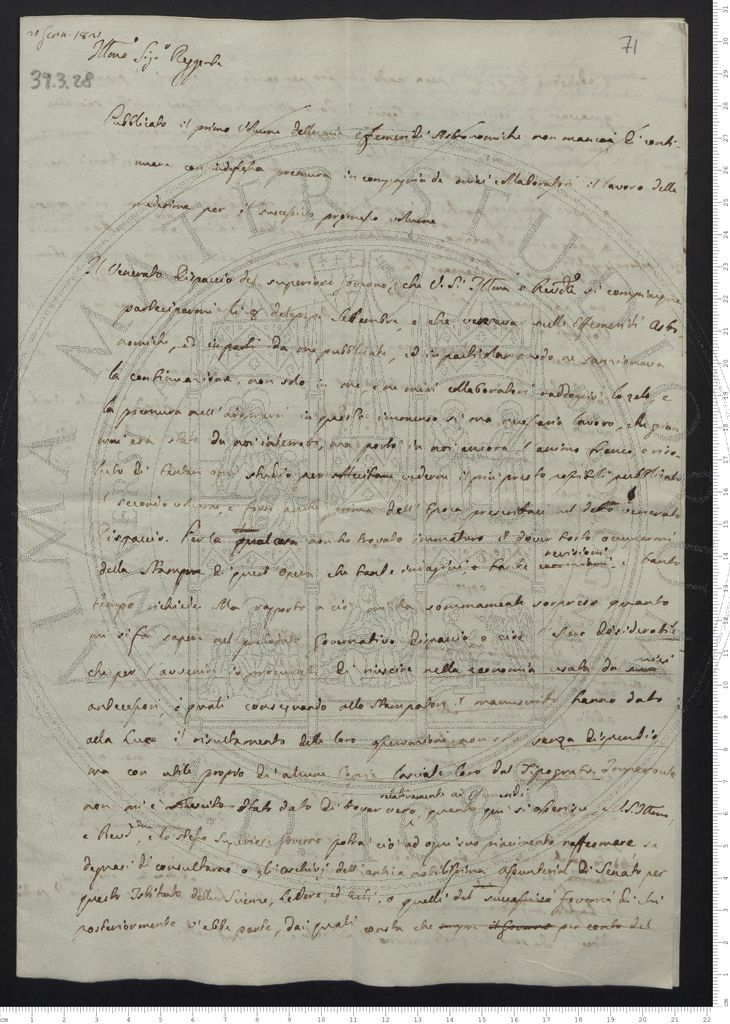 20 Genn. 1821
71
Illmo Sigr Reggente
39.3.28
Pubblicato il primo Volume delle mie Effemeridi Astronomiche non mancai di conti-
nuare con indefessa premura in compagnia de miei collaboratori il lavoro delle
medesime per il successivo promesso volume
Il Venerato Dispaccio del superiore Governo, che V. S. Illma e Revdma si compiacque
parteciparmi li 8 Settembre, e che verteva sulle Effemeridi Astro-
nomiche, ed in parte da me pubblicate, ed in particolar modo ne sanzionava
la continuazione, non solo in me e ne miei collaboratori raddoppiò lo zelo, e
la premura nell' in questo immenso si ma necessario lavoro, che giam
mai era stato da noi interrotto, ma portò in noi ancora l'animo franco e riso-
luto di tentar ogni studio per vedere il più presto possibile pubblicato
il secondo volume, e forse anche prima dell'Epoca prescritta nel detto venerato
Dispaccio. Per la qual cosa non ho trovato immaturo il dover tosto occuparmi
della Stampa di quest'Opera, che tante indagini e tante revisioni e tanto
tempo richiede. Ma rapporto a ciò mi ha sommamente sorpreso quanto
mi si fa sapere nel Governativo dispaccio, e cioè l'esser desiderabile
che per l'avvenire io procurassi di riuscire nella economia usata da miei
antecessori, i quali consegnando allo Stampatore il manuscritto hanno dato
alla Luce il risultamento delle loro osservazioni non solo senza dispendio
ma con utile proprio di alcune Copie lasciate loro dal Tipografo.
relativamente ai
non mi è stato dato di trovar vero, quanto qui si asserisce, e V. S. Illma
e Revdma, e lo stesso Superiore Governo potrà ciò ad ogni suo piacimento raffermare se
degnasi di consultarne o gli archivj dell'antica nobilissima Assunteria di Senato per
questo Istituto delle Scienze, Lettere, ed Arti, o quelli del successivo Governo di chi
posteriormente v'ebbe parte, dai quali consta che sempre il Governo per conto del